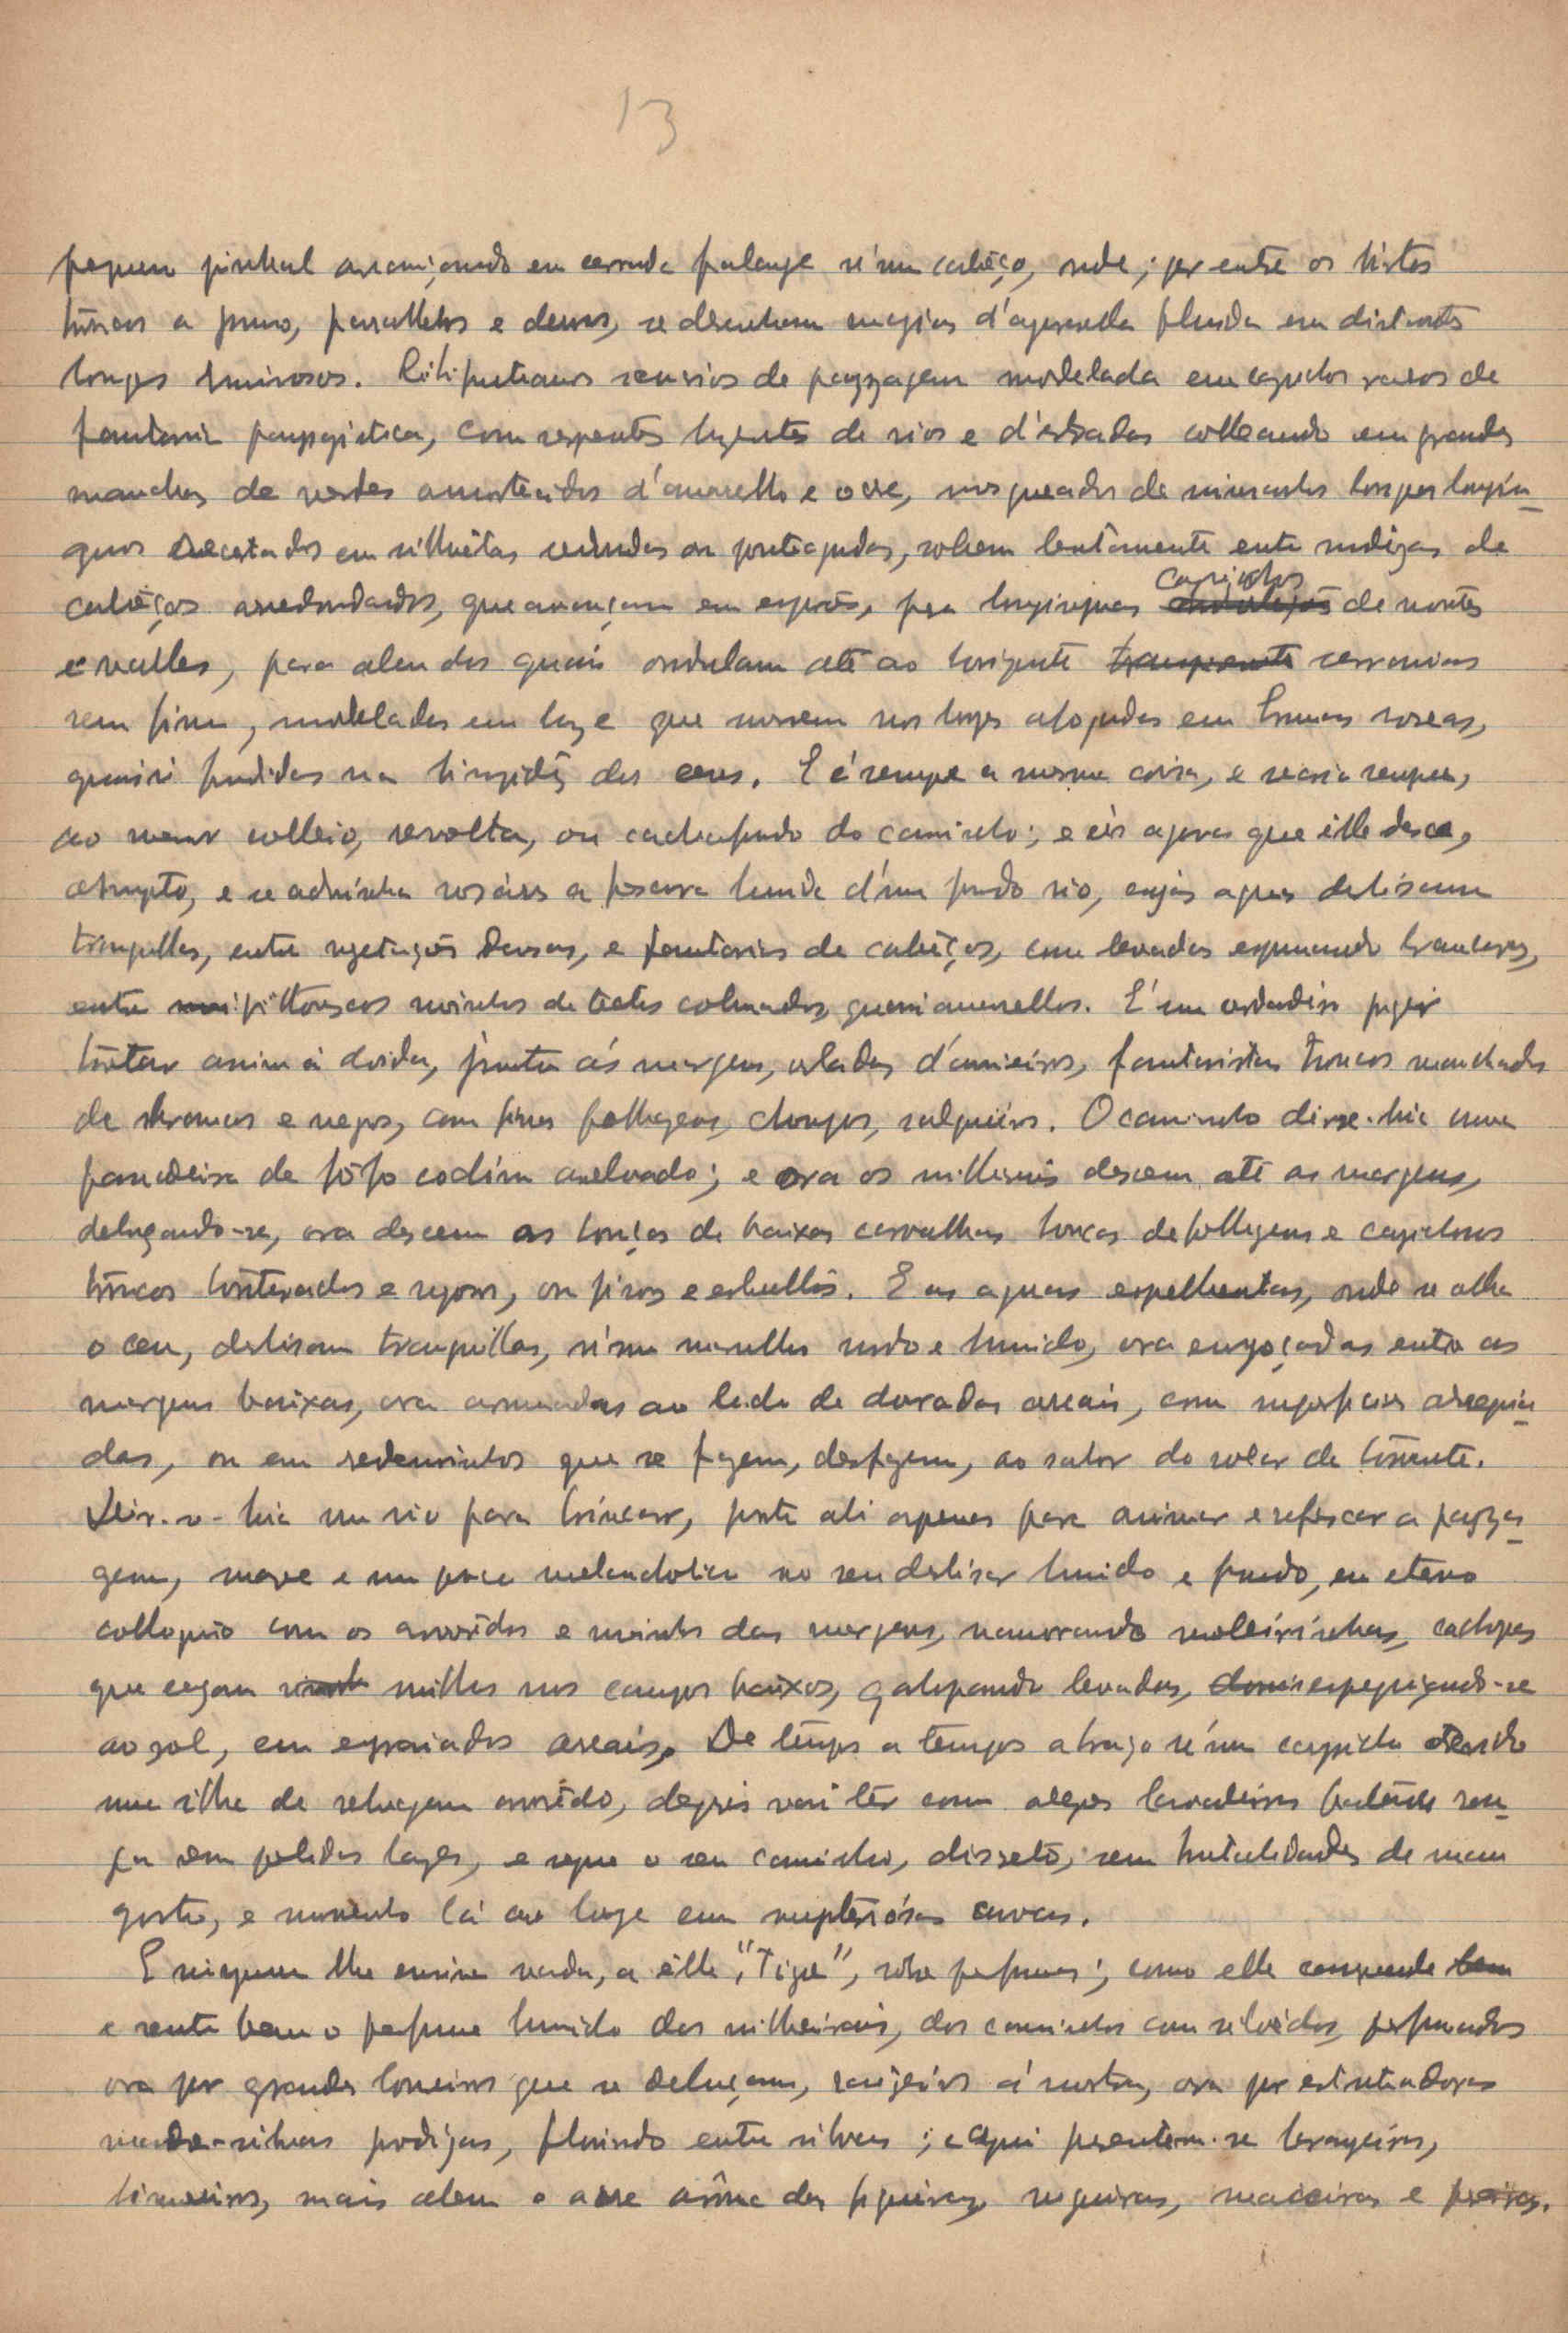 13
pequeno pinhal arrançonado em cerrada falange n'um cabêço, onde, por entre os hirtos
troncos a prumo, parallelos e densos, se desenham magias d'aguarella fluida em distantes
longes luminosos. Liliputianos scenarios de payzagem modelada em caprichos raros de
fantasia paysagistica, com serpentes luzentes de rios e d'estradas colleando em grandes
manchas de verdes amortecidos d'amarello e ocre, mosqueados de minusculos longes longin-
quos recortados em silhuêtas redondas ou ponteagudas, sobem lentamente entre nudizas de
cabêços arredondados, que avançam em esporões, para longinquos caprichos de montes
e valles, para alem dos quais ondulam até ao horizonte transparente serranias
sem fim, modeladas em luz e que morrem nos longes afogadas em brumas roseas,
quasi fundidas na limpidêz dos ceus. E é sempre a mesma coisa, e varia sempre,
ao menor colleio, revolta, ou cachafundo do caminho; e eis agora que êlle desce,
abrupto, e se adivinha nos áres a frescura humida d'um fundo rio, cujas aguas deslisam
tranquillas, entre vegetações densas, e fantasias de cabêços, com levadas espumando brancuras,
entre pittorescos moinhos de tectos colmados, quasi amarellos. E' um verdadeiro prazer
trotar assim á doida, junto ás margens, orladas d'amieiros, fantasistas troncos manchados
de brancos e negros, com finas folhagens, choupos, salgueiros. O caminho dir-se-hia uma
passadeira de fôfo coxim arelvado; e ora os milheirais descem até as margens,
debruçando-se, ora descem as touças de baixas carvalhas loucas de folhagens e caprichosos
troncos contorcidos e rugosos, ou finos e esbeltos. E as aguas espelhentas, onde se olha
o ceu, deslisam tranquillas, n'um marulho surdo e humido, ora engoçadas entre as
margens baixas, ora arrumadas ao lado de dourados areais, com superficies arrepia-
das, ou em redemoinhos que se fazem, desfazem, ao sabor do rolar da corrente.
Dir-se-hia um rio para brincar, posto ali apenas para animar e refrescar a payza-
gem, suave e um pouco melancholico no seu deslisar humido e fundo, em eterno
colloquio com os arvorêdos e moinhos das margens, namorando moleirinhas, cachopas
que segam milhos nos campos baixos, galopando levadas, espreguiçando-se
ao sol, em espraiados areais. De tempos a tempos abraça n'um capricho
uma ilha de selvagem arvorêdo, depois vai têr com alegres lavadeiras batendo rou-
pa em polidas lages, e segue o seu caminho, discreto, sem brutalidades de mau
gosto, e morrendo lá ao longe em mysteriósas curvas.
E ninguem lhe ensina nada, a êlle, "Tigre", sobre perfumes; como elle comprende bem
e sente bem o perfume humido dos milheirais, dos caminhos com silvêdos, perfumados
ora por grandes loureiros que se debruçam, ora por estonteadoras
madre-silvas prodigas, florindo entre silvas; e aqui presentem-se laranjeiras,
limoeiros, mais alem o acre arôma das figueiras, nogueiras, macieiras e pereiras.